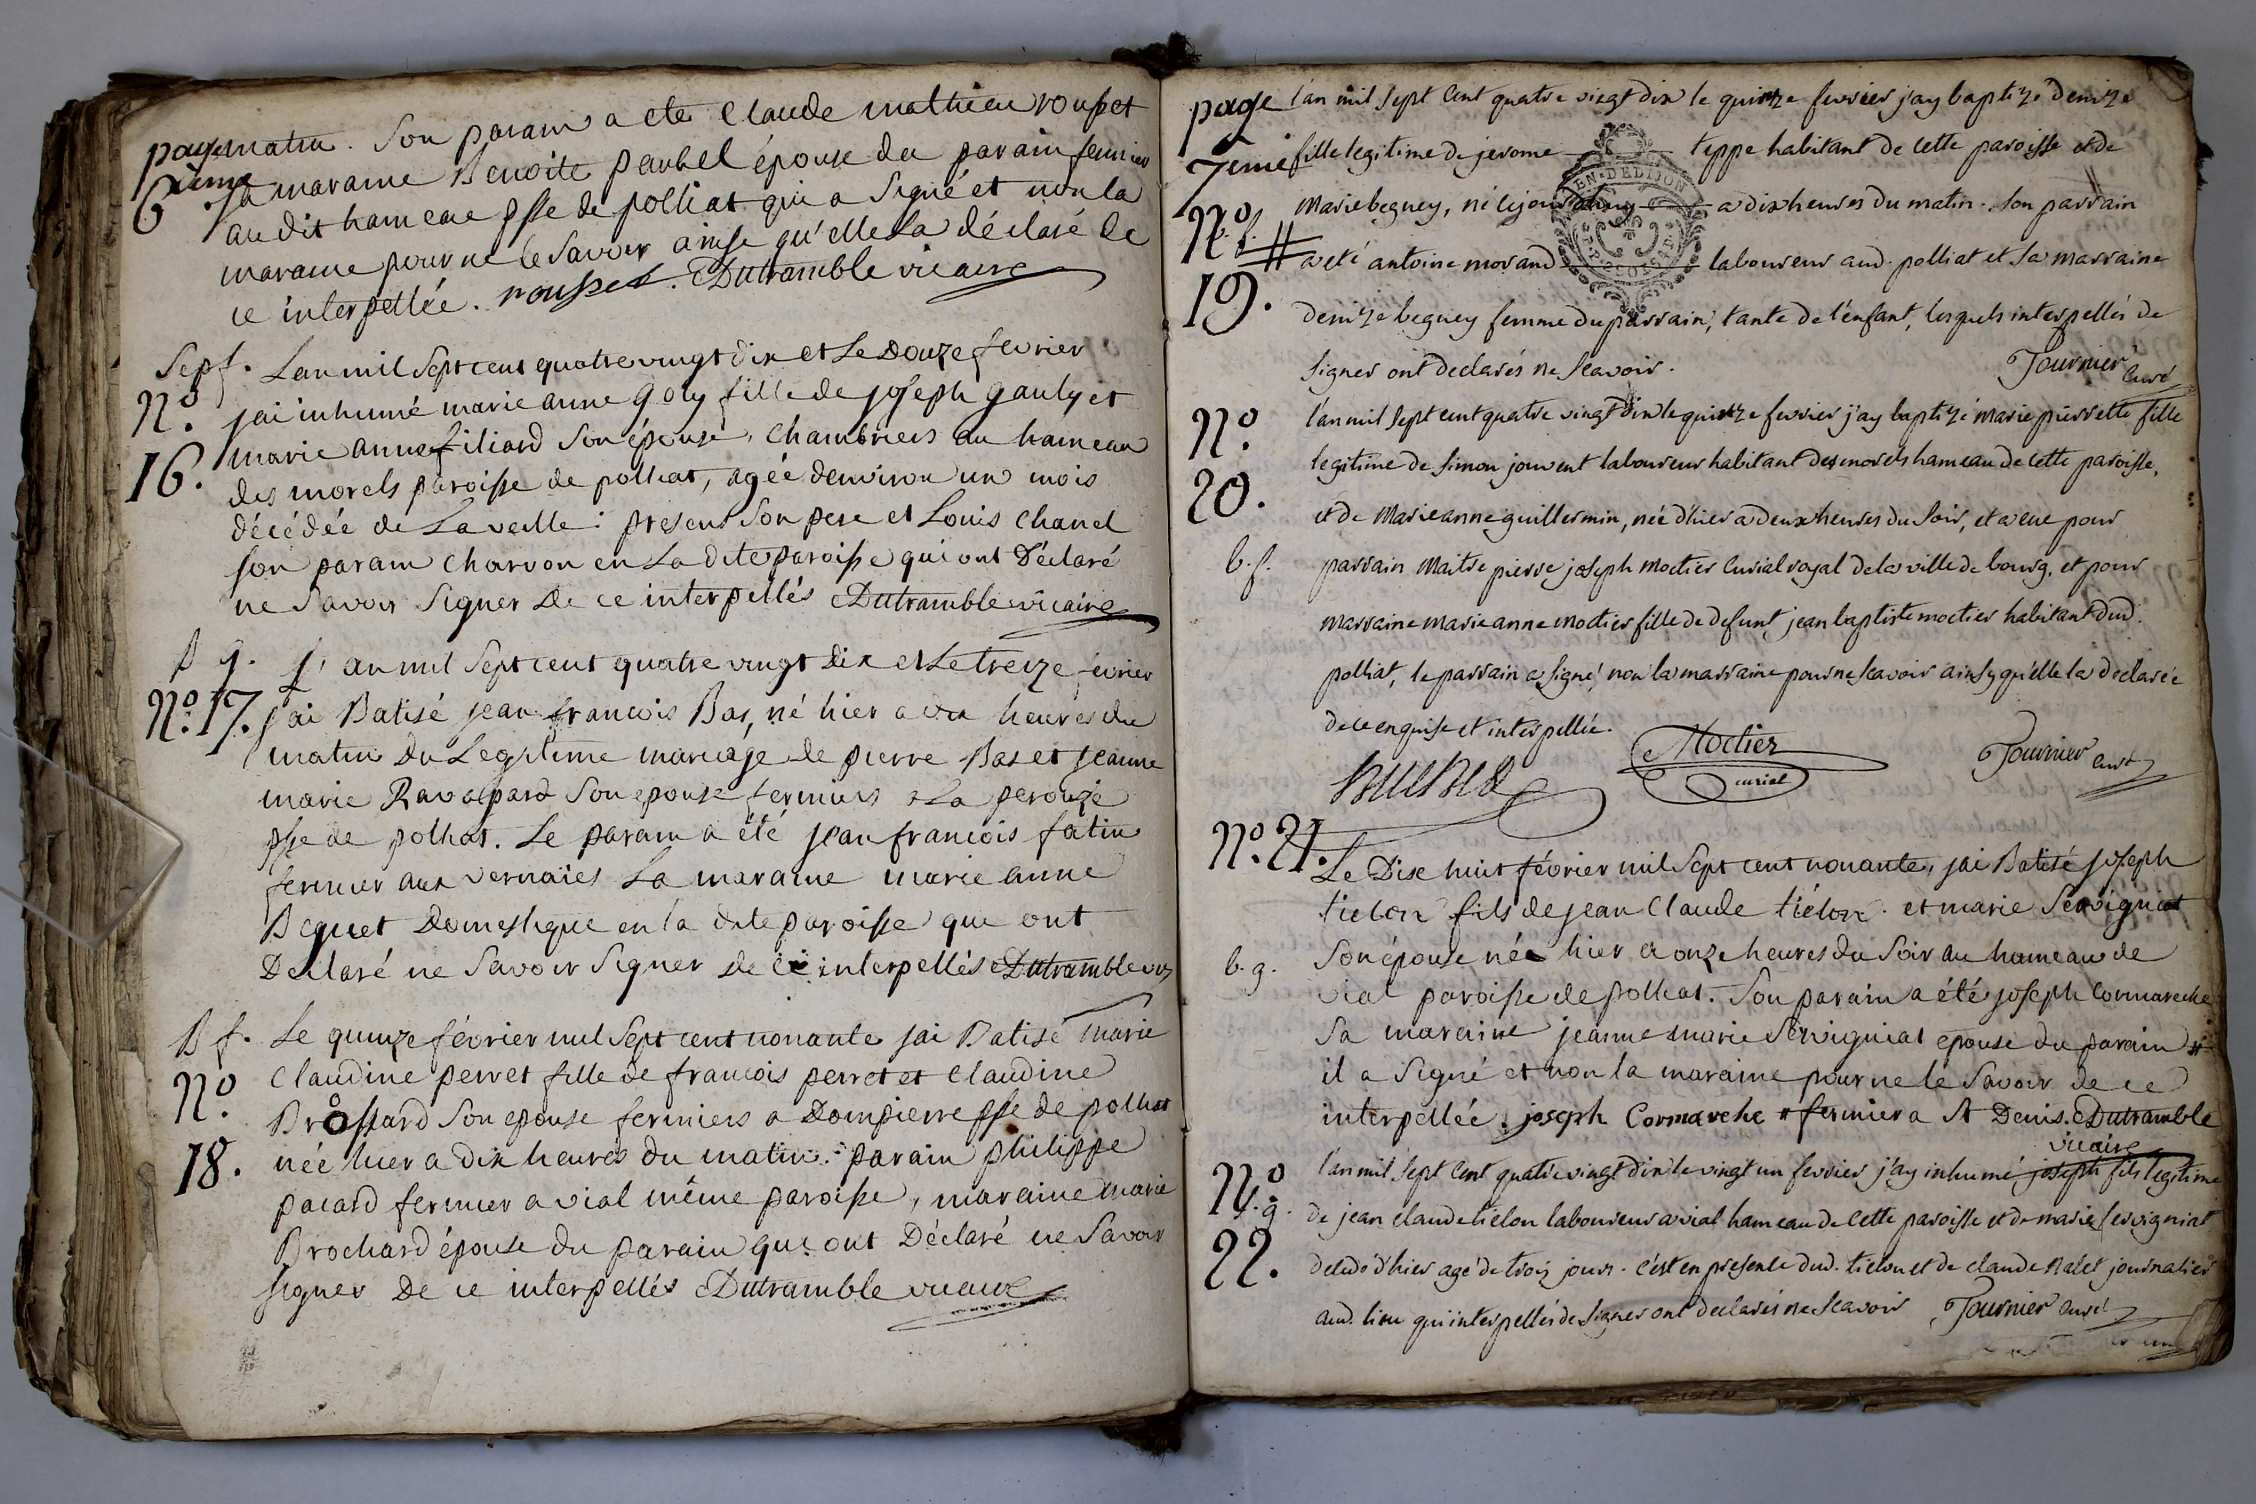 page matin. Son parain a ete Claude mathieu rousset
6ieme Sa maraine Benoite paubel épouse du parain fermier
au dit hameau psse de polliat qui a Signé et non la
maraine pour ne le Savoir ainsi qu'elle la déclaré de
ce interpellée. rousset. Dutramble vicaire
Sep f. L'an mil Sept cent quatre vingt dix et Le Douze fevrier
N° jai inhumé marie anne goly fille de joseph gauly et
16. marie anne filiard Son épouse, chambriers au hameau
des morels paroisse de polliat, agée denviron un mois
décédée de La veille: present Son pere et Louis chanel
son parain charron en La dite paroisse qui ont Déclaré
ne Savoir Signer De ce interpellés Dutramble vicaire
B g. L'an mil Sept cent quatre vingt dix et Le treize fevrier
N°. 17. jai Batisé jean francois Bas, né hier a dix heures du
matin Du Legitime mariage de pierre Bas et jeanne
marie Ravassard Son epouse fermiers a La perouze
psse de polliat. Le parain a été jean francois fatin
fermier aux vernaies La maraine marie anne
Beguet Domestique en la dite paroisse que ont
Declaré ne Savoir Signer De ce interpellés Dutramble vic
B f. Le quinze février mil Sept cent nonante jai Batisé marie
N° Claudine perret fille de francois perret et Claudine
Brossard Son epouse fermiers a Dompierre psse de polliat
18. née hier a dix heures du matin: parain philippe
pacard fermier a vial même paroisse, maraine marie
Brochard épouse du parain que ont Déclaré ne Savoir
signer De ce interpellés Dutramble vicaire
page l'an mil Sept Cent quatre vingt dix le quinze fevrier j'ay baptizé denize
7eme fille legitime de jerome teppe habitant de cette paroisse et de
EN. DE DIJON
N° b. f. Marie beguey, né le jour a dix heures du matin. Son parrain
# a eté antoine morand laboureur aud. polliat et Sa marraine
19. denize beguey femme du parrain, tante de l'enfant, lesquels interpellés de
signer ont declarés ne Scavoir. Tournier curé
N° l'an mil Sept cent quatre vingt dix le quinze fevrier j'ay baptizé marie pierrette fille
legitime de Simon jouvent laboureur habitant des morels hameau de cette paroisse,
20. et de Marie anne guillermin, née d'hier a deux heures du Soir, et a eue pour
b. f. parrain Maitre pierre joseph Moctier Curial royal de la ville de bourg, et pour
marraine Marie anne Moctier fille de defunt jean baptiste moctier habitant dud.
polliat, le parrain a signé, non la marraine pour ne Scavoir ainsy qu'elle la declarée
de ce enquise et interpellée.
Moctier curial Tournier curé
N°. 21. Le Dix huit février mil Sept cent nonante, jai Batisé joseph
tielon fils de jean Claude tielon. et marie Servigniat
b. g. Son épouse née hier a onze heures du Soir au hameau de
vial paroisse de polliat. Son parain a été joseph Cormareche
Sa maraine jeanne marie Servigniat epouse du parain #
il a Signé et non la maraine pour ne le Savoir de ce
interpellée. joseph Cormareche # fermier a St Denis. Dutramble
vicaire
N° l'an mil Sept Cent quatre vingt dix le vingt un fevrier j'ay inhumé joseph fils legitime
g. de jean claude tielon laboureur a vial hameau de cette paroisse et de marie Servigniat
22. decedé d'hier agé de trois jours. c'est en presence dud. tielon et de claude Ralet journalier
aud. lieu qui interpellés de signer ont declarés ne Scavoir Tournier curé